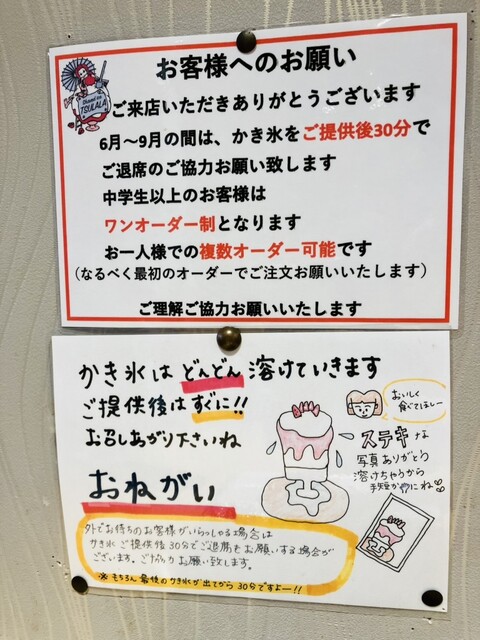 お客様へのお願い
TSUKALA
ご来店いただきありがとうございます
6月～9月の間は、かき氷をご提供後30分で
ご退席のご協力お願い致します
中学生以上のお客様は
ワンオーダー制となります
お一人様での複数オーダー可能です
（なるべく最初のオーダーでご注文お願いいたします）
ご理解ご協力お願いいたします
かき氷はどんどん溶けていきます
ご提供後はすぐに!!
お召しあがり下さいね
おいしく
食べてほしー
ステキな
写真ありがとう
溶けちゃうから
手短かにね
おねがい
外でお待ちのお客様がいらっしゃる場合は
かき氷ご提供後30分でご退席をお願いする場合が
ございます。ご協力お願い致します。
※もちろん最後のかき氷が出てから30分ですよー!!